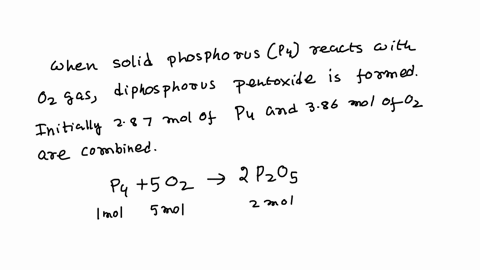 When solid phosphorus (P4) reacts with
O2 gas, diphosphorus pentoxide is formed.
Initially 2.87 mol of P4 and 3.86 mol of O2
are combined.
P4 + 5O2 → 2P2O5
1mol 5mol 2mol